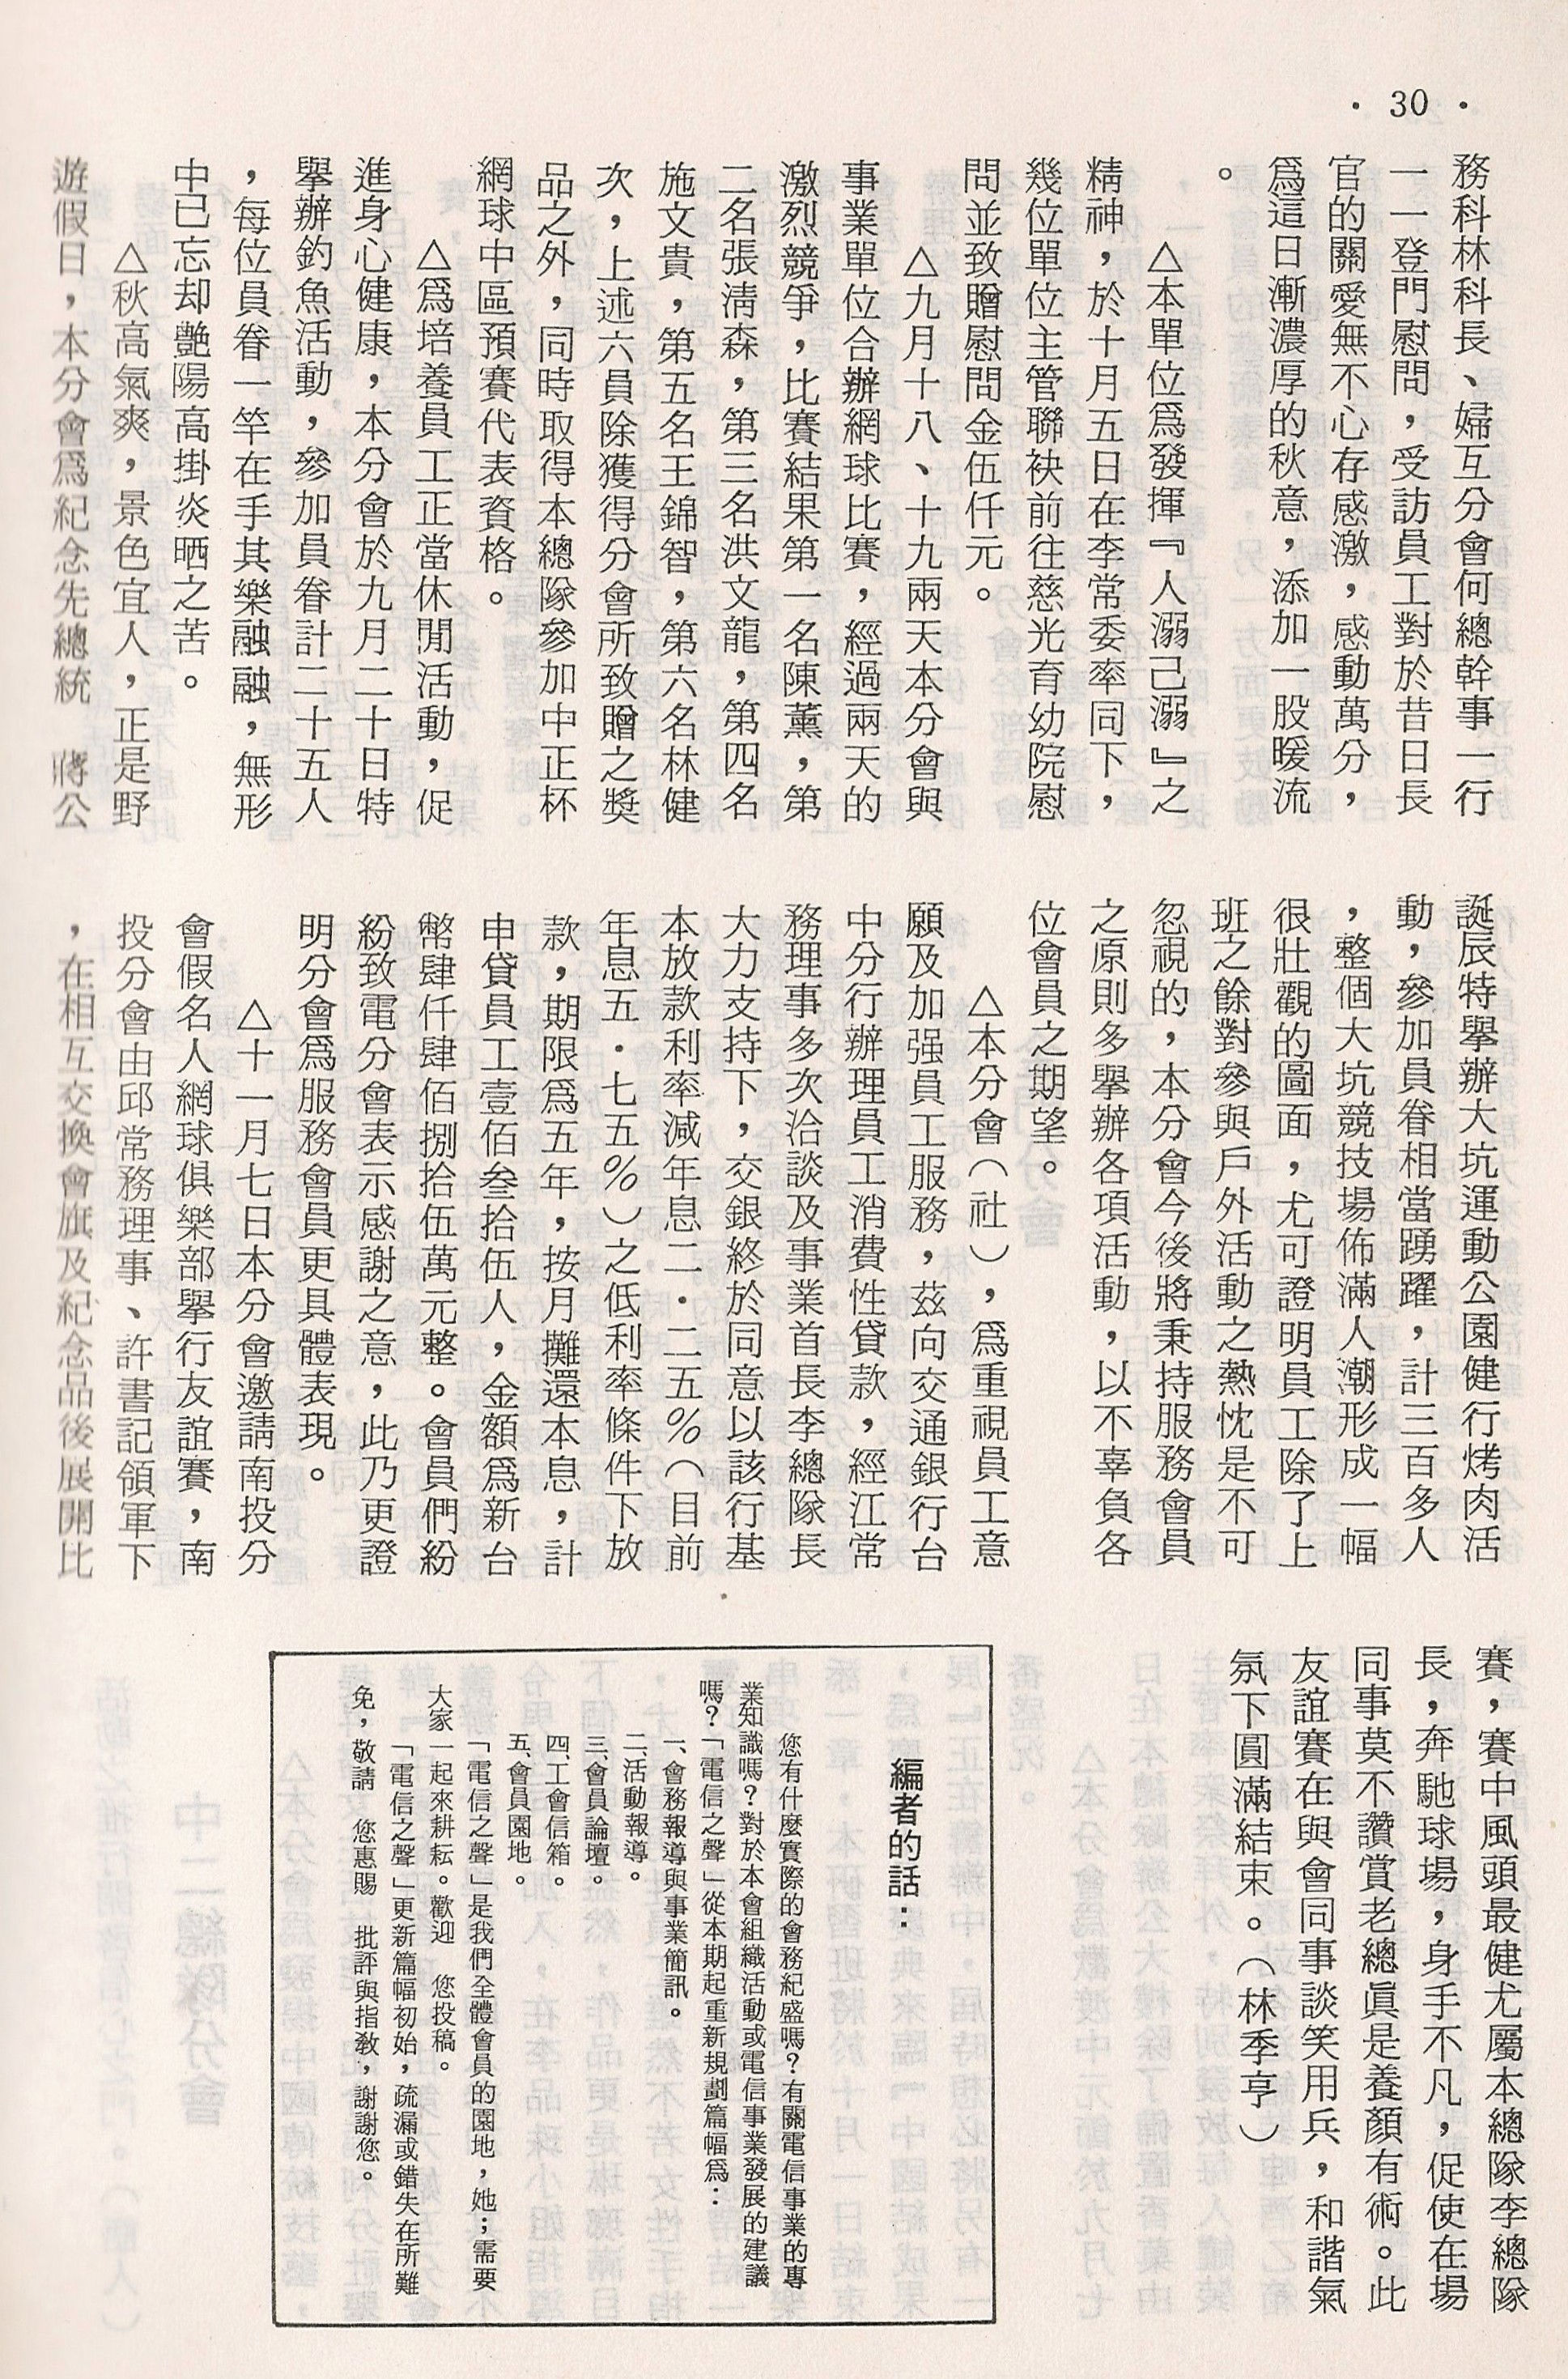 ・30・
務科林科長、婦互分會何總幹事一行
一一登門慰問，受訪員工對於昔日長
官的關愛無不心存感激，感動萬分，
爲這日漸濃厚的秋意，添加一股暖流
。
△本單位爲發揮『人溺己溺』之
精神，於十月五日在李常委率同下，
幾位單位主管聯袂前往慈光育幼院慰
問並致贈慰問金伍仟元。
△九月十八、十九兩天本分會與
事業單位合辦網球比賽，經過兩天的
激烈競爭，比賽結果第一名陳薰，第
二名張淸森，第三名洪文龍，第四名
施文貴，第五名王錦智，第六名林健
次，上述六員除獲得分會所致贈之獎
品之外，同時取得本總隊參加中正杯
網球中區預賽代表資格。
△爲培養員工正當休閒活動，促
進身心健康，本分會於九月二十日特
舉辦釣魚活動，參加員眷計二十五人
，每位員眷一竿在手其樂融融，無形
中已忘却艷陽高掛炎晒之苦。
△秋高氣爽，景色宜人，正是野
遊假日，本分會爲紀念先總統　蔣公
誕辰特舉辦大坑運動公園健行烤肉活
動，參加員眷相當踴躍，計三百多人
，整個大坑競技場佈滿人潮形成一幅
很壯觀的圖面，尤可證明員工除了上
班之餘對參與戶外活動之熱忱是不可
忽視的，本分會今後將秉持服務會員
之原則多舉辦各項活動，以不辜負各
位會員之期望。
△本分會（社），爲重視員工意
願及加强員工服務，茲向交通銀行台
中分行辦理員工消費性貸款，經江常
務理事多次洽談及事業首長李總隊長
大力支持下，交銀終於同意以該行基
本放款利率減年息二．二五％（目前
年息五．七五％）之低利率條件下放
款，期限爲五年，按月攤還本息，計
申貸員工壹佰叁拾伍人，金額爲新台
幣肆仟肆佰捌拾伍萬元整。會員們紛
紛致電分會表示感謝之意，此乃更證
明分會爲服務會員更具體表現。
△十一月七日本分會邀請南投分
會假名人網球俱樂部舉行友誼賽，南
投分會由邱常務理事、許書記領軍下
，在相互交換會旗及紀念品後展開比
賽，賽中風頭最健尤屬本總隊李總隊
長，奔馳球場，身手不凡，促使在場
同事莫不讚賞老總眞是養顏有術。此
友誼賽在與會同事談笑用兵，和諧氣
氛下圓滿結束。（林季亨）
編者的話：
您有什麼實際的會務紀盛嗎？有關電信事業的專
業知識嗎？對於本會組織活動或電信事業發展的建議
嗎？「電信之聲」從本期起重新規劃篇幅爲：
一、會務報導與事業簡訊。
二、活動報導。
三、會員論壇。
四、工會信箱。
五、會員園地。
「電信之聲」是我們全體會員的園地，她；需要
大家一起來耕耘。歡迎　您投稿。
「電信之聲」更新篇幅初始，疏漏或錯失在所難
免，敬請　您惠賜　批評與指敎，謝謝您。